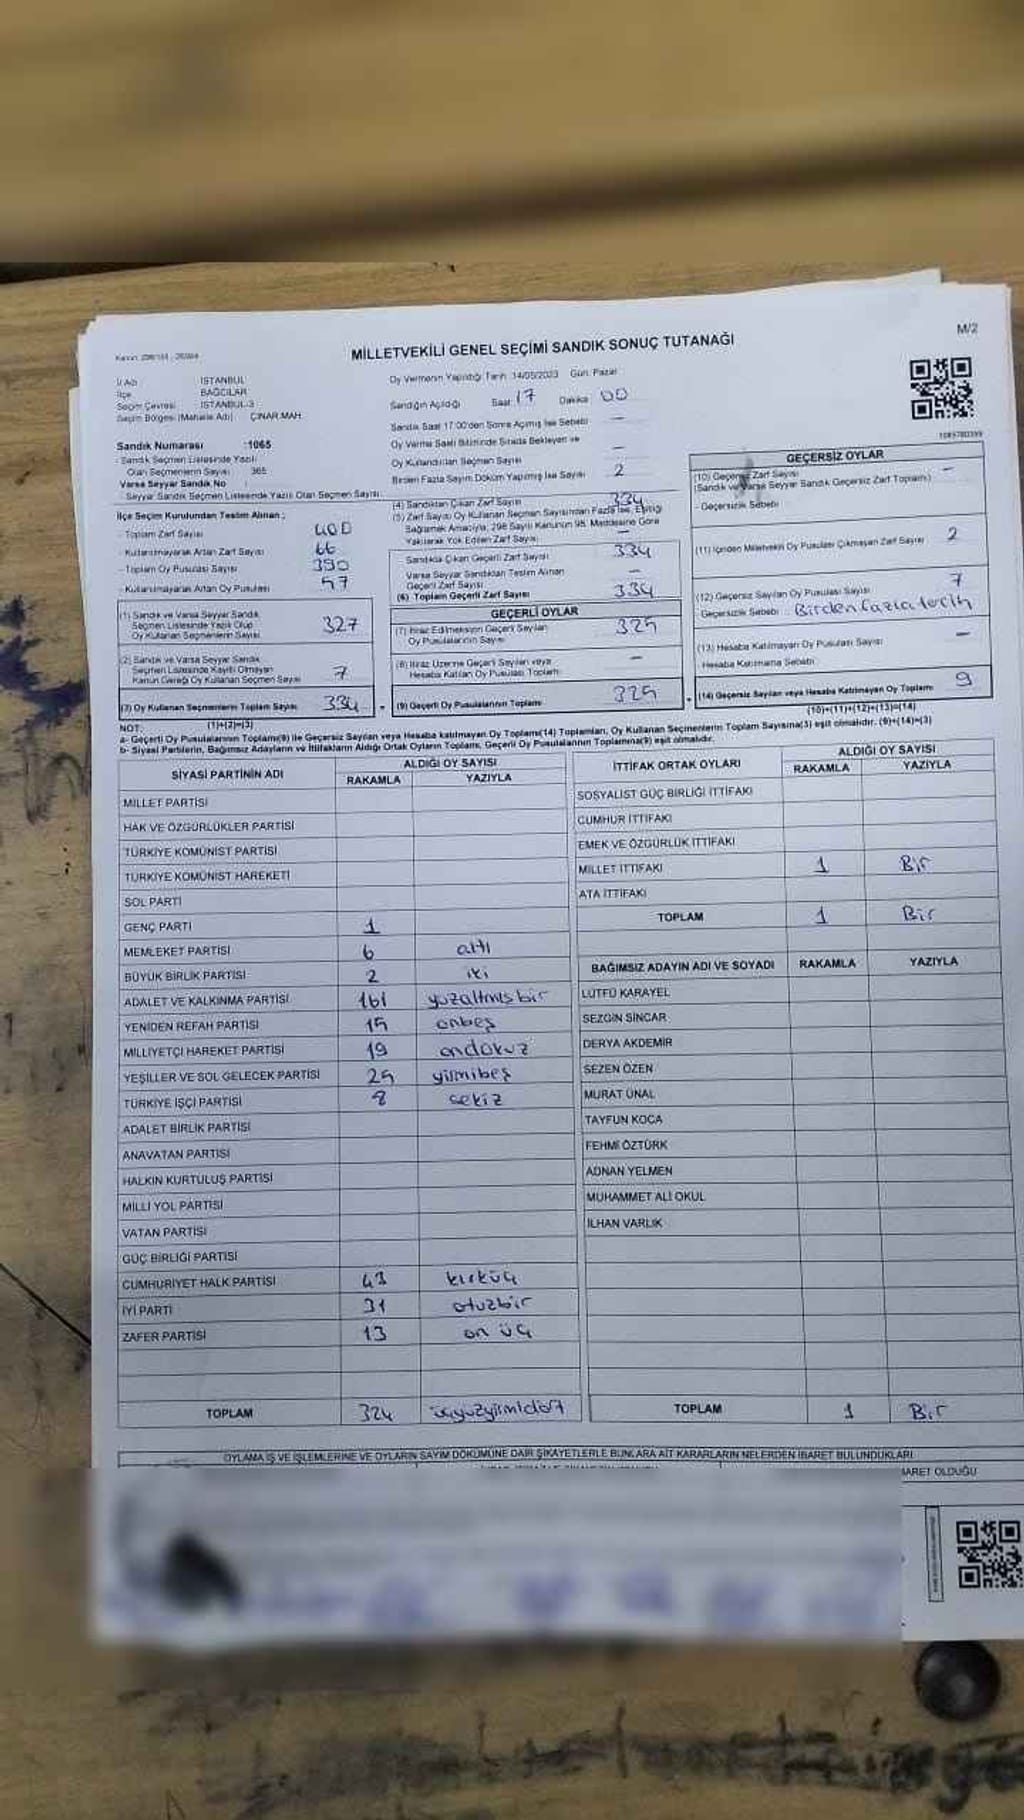 M/2
MİLLETVEKİLİ GENEL SEÇİMİ SANDIK SONUÇ TUTANAĞI
İl Adı İSTANBUL
İlçe BAĞCILAR
Seçim Çevresi İSTANBUL-3
Seçim Bölgesi (Mahalle Adı) ÇINAR MAH.
Sandık Numarası :1065
- Sandık Seçmen Listesinde Yazılı
Olan Seçmenlerin Sayısı 365
Varsa Seyyar Sandık No
- Seyyar Sandık Seçmen Listesinde Yazılı Olan Seçmen Sayısı
Oy Vermenin Yapıldığı Tarih: 14/05/2023 Gün: Pazar
Sandığın Açıldığı Saat 17 Dakika 00
Sandık Saat 17:00'den Sonra Açılmış İse Sebebi —
Oy Verme Saati Bitiminde Sırada Bekleyen ve
Oy Kullandırılan Seçmen Sayısı —
Birden Fazla Sayım Döküm Yapılmış İse Sayısı 2
İlçe Seçim Kurulundan Teslim Alınan ;
- Toplam Zarf Sayısı 400
- Kullanılmayarak Artan Zarf Sayısı 66
- Toplam Oy Pusulası Sayısı 390
- Kullanılmayarak Artan Oy Pusulası 57
(1) Sandık ve Varsa Seyyar Sandık
Seçmen Listesinde Yazılı Olup
Oy Kullanan Seçmenlerin Sayısı 327
(2) Sandık ve Varsa Seyyar Sandık
Seçmen Listesinde Kayıtlı Olmayan
Kanun Gereği Oy Kullanan Seçmen Sayısı 7
(3) Oy Kullanan Seçmenlerin Toplam Sayısı 334
(1)+(2)=(3)
(4) Sandıktan Çıkan Zarf Sayısı 334
(5) Zarf Sayısı Oy Kullanan Seçmen Sayısından Fazla İse, Eşitliği
Sağlamak Amacıyla; 298 Sayılı Kanunun 98. Maddesine Göre
Yakılarak Yok Edilen Zarf Sayısı —
Sandıkta Çıkan Geçerli Zarf Sayısı 334
Varsa Seyyar Sandıktan Teslim Alınan
Geçerli Zarf Sayısı —
(6) Toplam Geçerli Zarf Sayısı 334
GEÇERLİ OYLAR
(7) İtiraz Edilmeksizin Geçerli Sayılan
Oy Pusulalarının Sayısı 325
(8) İtiraz Üzerine Geçerli Sayılan veya
Hesaba Katılan Oy Pusulası Toplamı —
(9) Geçerli Oy Pusulalarının Toplamı 325
1089780399
GEÇERSİZ OYLAR
(10) Geçersiz Zarf Sayısı —
(Sandık ve Varsa Seyyar Sandık Geçersiz Zarf Toplamı)
- Geçersizlik Sebebi
(11) İçinden Milletvekili Oy Pusulası Çıkmayan Zarf Sayısı 2
(12) Geçersiz Sayılan Oy Pusulası Sayısı 7
- Geçersizlik Sebebi : Birden fazla tercih
(13) Hesaba Katılmayan Oy Pusulası Sayısı —
Hesaba Katılmama Sebebi
(14) Geçersiz Sayılan veya Hesaba Katılmayan Oy Toplamı 9
(10)+(11)+(12)+(13)=(14)
NOT:
a- Geçerli Oy Pusulalarının Toplamı(9) ile Geçersiz Sayılan veya Hesaba katılmayan Oy Toplamı(14) Toplamları, Oy Kullanan Seçmenlerin Toplam Sayısına(3) eşit olmalıdır. (9)+(14)=(3)
b- Siyasi Partilerin, Bağımsız Adayların ve İttifakların Aldığı Ortak Oyların Toplamı, Geçerli Oy Pusulalarının Toplamına(9) eşit olmalıdır.
SİYASİ PARTİNİN ADI ALDIĞI OY SAYISI
RAKAMLA YAZIYLA
MİLLET PARTİSİ
HAK VE ÖZGÜRLÜKLER PARTİSİ
TÜRKİYE KOMÜNİST PARTİSİ
TÜRKİYE KOMÜNİST HAREKETİ
SOL PARTİ
GENÇ PARTİ 1
MEMLEKET PARTİSİ 6 altı
BÜYÜK BİRLİK PARTİSİ 2 iki
ADALET VE KALKINMA PARTİSİ 161 yüzaltmışbir
YENİDEN REFAH PARTİSİ 15 onbeş
MİLLİYETÇİ HAREKET PARTİSİ 19 ondokuz
YEŞİLLER VE SOL GELECEK PARTİSİ 25 yirmibeş
TÜRKİYE İŞÇİ PARTİSİ 8 sekiz
ADALET BİRLİK PARTİSİ
ANAVATAN PARTİSİ
HALKIN KURTULUŞ PARTİSİ
MİLLİ YOL PARTİSİ
VATAN PARTİSİ
GÜÇ BİRLİĞİ PARTİSİ
CUMHURİYET HALK PARTİSİ 43 kırküç
İYİ PARTİ 31 otuzbir
ZAFER PARTİSİ 13 on üç
TOPLAM 324 üçyüzyirmidört
İTTİFAK ORTAK OYLARI ALDIĞI OY SAYISI
RAKAMLA YAZIYLA
SOSYALİST GÜÇ BİRLİĞİ İTTİFAKI
CUMHUR İTTİFAKI
EMEK VE ÖZGÜRLÜK İTTİFAKI
MİLLET İTTİFAKI 1 Bir
ATA İTTİFAKI
TOPLAM 1 Bir
BAĞIMSIZ ADAYIN ADI VE SOYADI RAKAMLA YAZIYLA
LÜTFÜ KARAYEL
SEZGİN SİNCAR
DERYA AKDEMİR
SEZEN ÖZEN
MURAT ÜNAL
TAYFUN KOCA
FEHMİ ÖZTÜRK
ADNAN YELMEN
MUHAMMET ALİ OKUL
İLHAN VARLIK
TOPLAM 1 Bir
OYLAMA İŞ VE İŞLEMLERİNE VE OYLARIN SAYIM DÖKÜMÜNE DAİR ŞİKAYETLERLE BUNLARA AİT KARARLARIN NELERDEN İBARET BULUNDUKLARI
BARET OLDUĞU